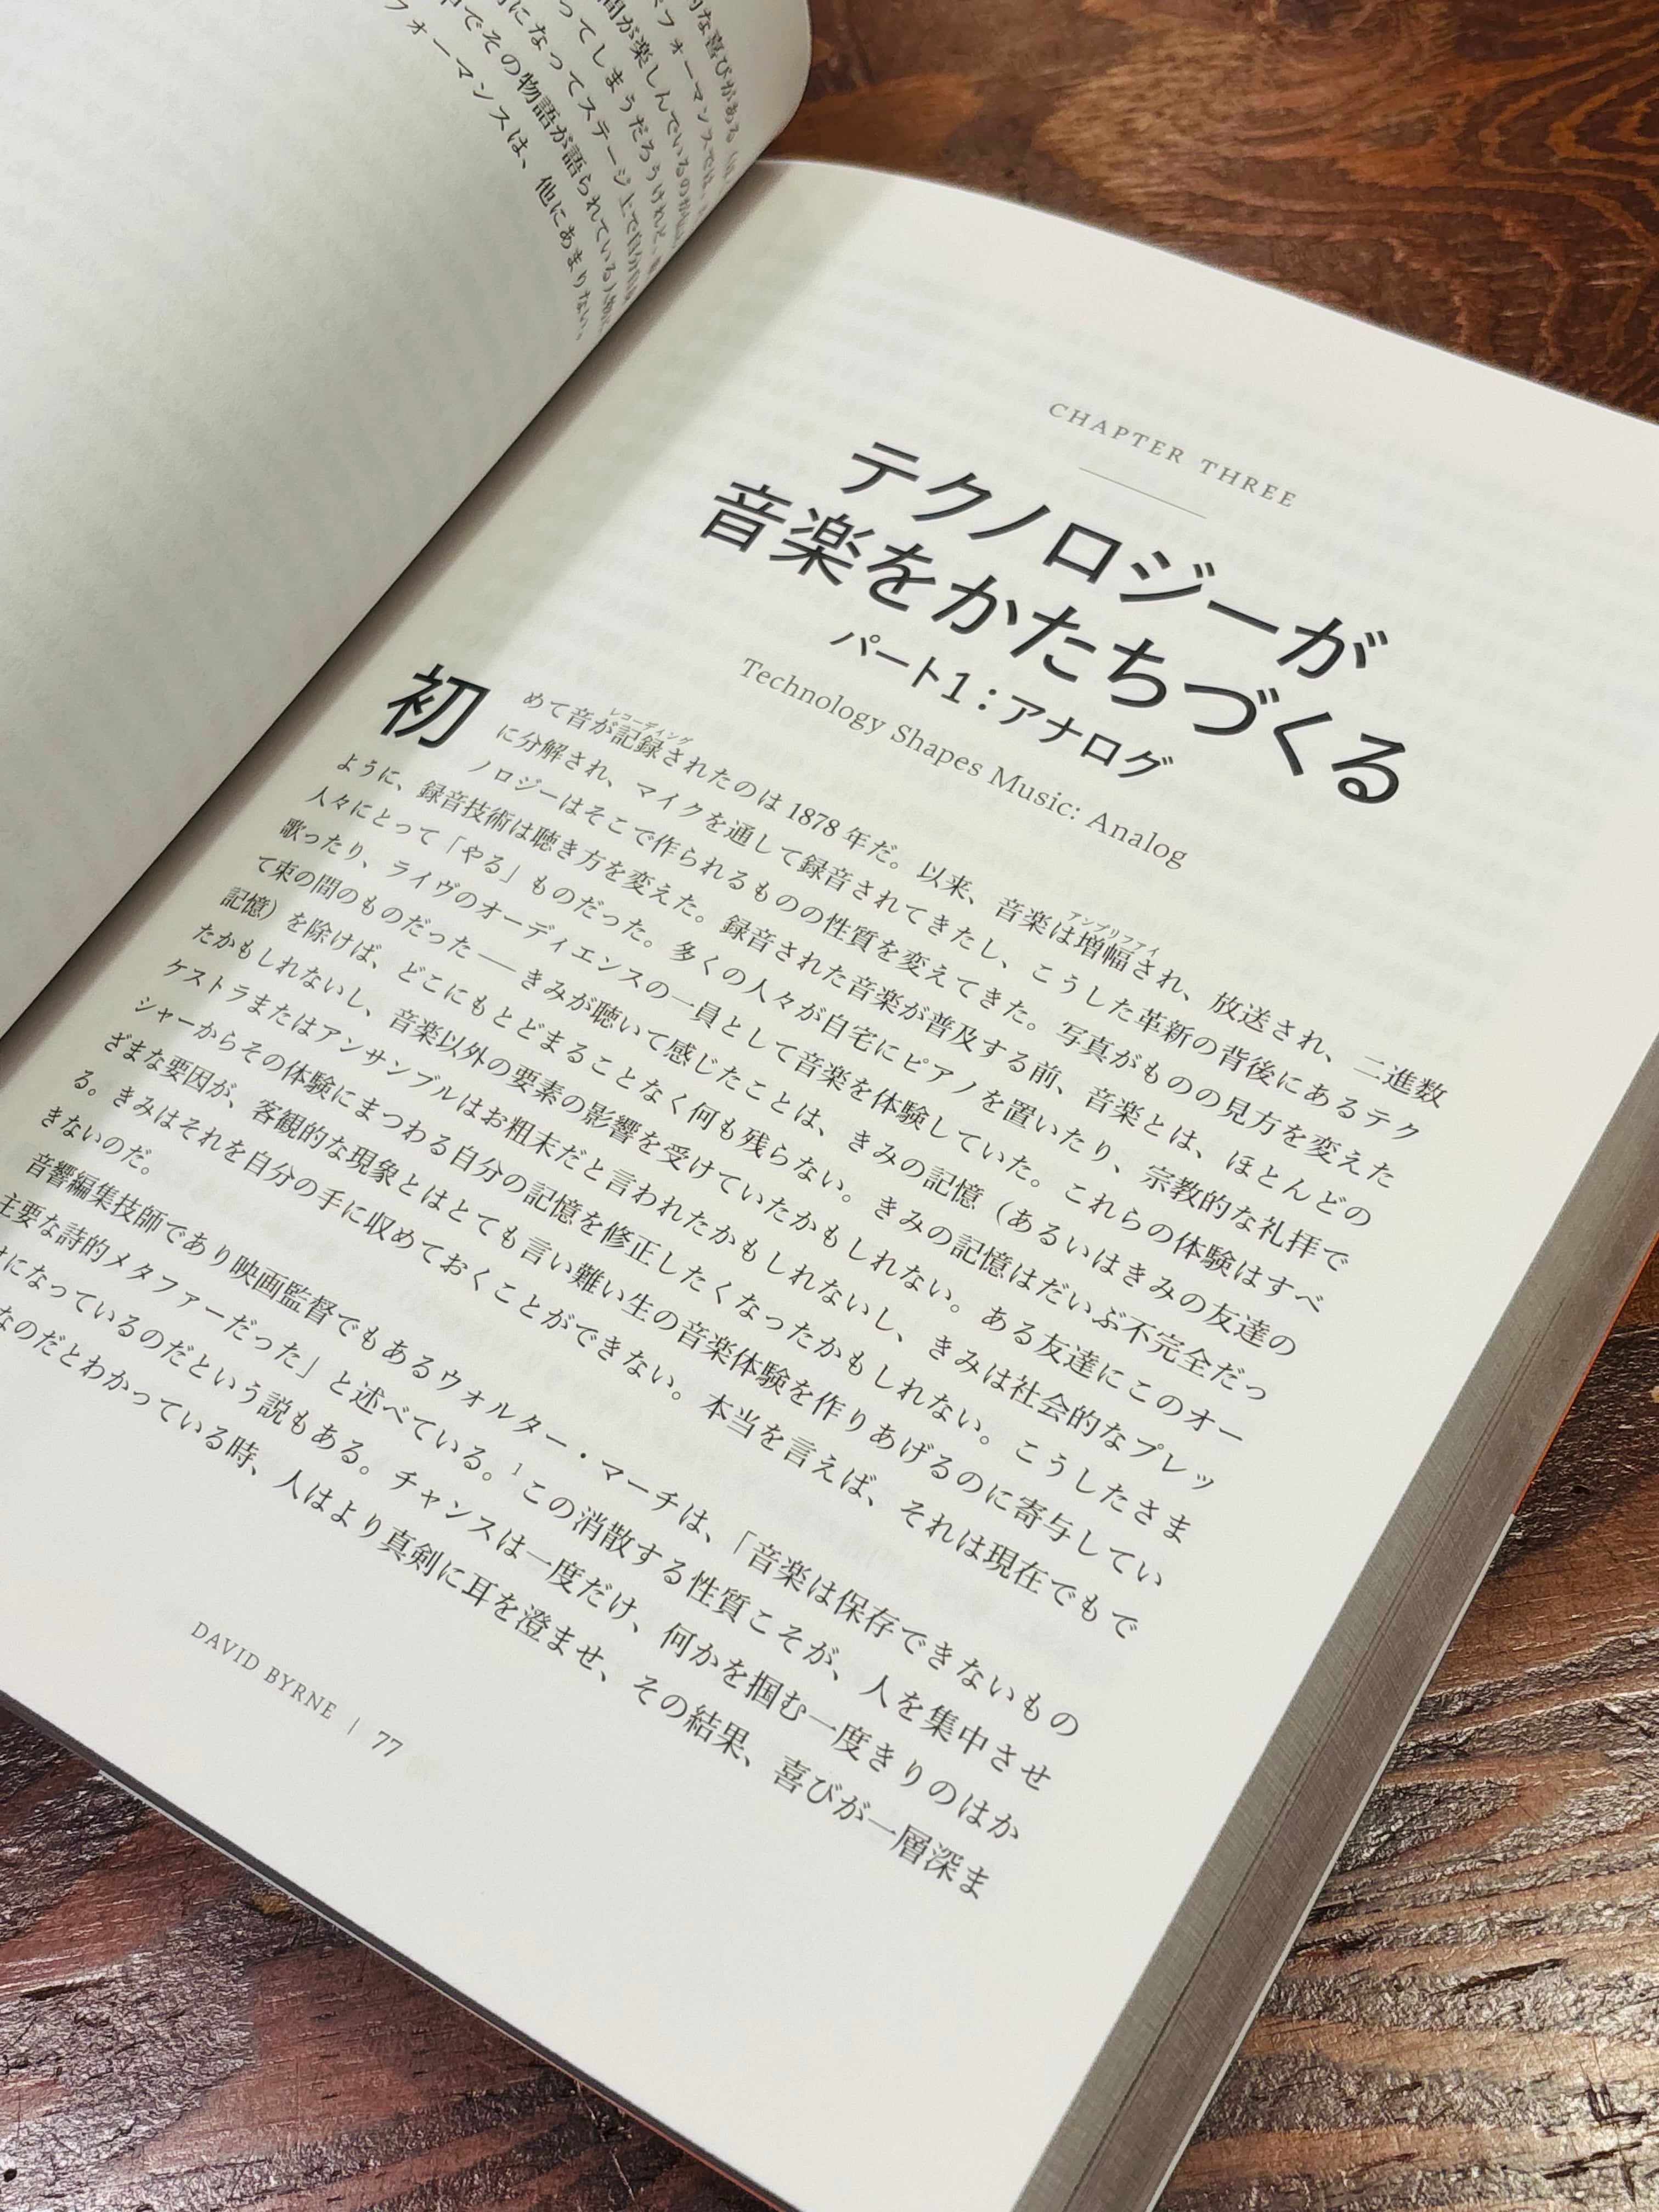 的な喜びがある
フォーマンスでは、
間が楽しんでいるのが
ってしまうだろうけれど、
になってステージ上で自分自
でその物語が語られている)
フォーマンスは、他にあまりない。
CHAPTER THREE
テクノロジーが
音楽をかたちづくる
パート1：アナログ
Technology Shapes Music: Analog
レコーディング
アンプリファイ
初めて音が記録されたのは 1878 年だ。以来、音楽は増幅され、放送され、二進数
に分解され、マイクを通して録音されてきたし、こうした革新の背後にあるテク
ノロジーはそこで作られるものの性質を変えてきた。写真がものの見方を変えた
ように、録音技術は聴き方を変えた。録音された音楽が普及する前、音楽とは、ほとんどの
人々にとって「やる」ものだった。多くの人々が自宅にピアノを置いたり、宗教的な礼拝で
歌ったり、ライヴのオーディエンスの一員として音楽を体験していた。これらの体験はすべ
て束の間のものだった――きみが聴いて感じたことは、きみの記憶（あるいはきみの友達の
記憶）を除けば、どこにもとどまることなく何も残らない。きみの記憶はだいぶ不完全だっ
たかもしれないし、音楽以外の要素の影響を受けていたかもしれない。ある友達にこのオー
ケストラまたはアンサンブルはお粗末だと言われたかもしれないし、きみは社会的なプレッ
シャーからその体験にまつわる自分の記憶を修正したくなったかもしれない。こうしたさま
ざまな要因が、客観的な現象とはとても言い難い生の音楽体験を作りあげるのに寄与してい
る。きみはそれを自分の手に収めておくことができない。本当を言えば、それは現在でもで
きないのだ。
音響編集技師であり映画監督でもあるウォルター・マーチは、「音楽は保存できないもの
主要な詩的メタファーだった」と述べている。1 この消散する性質こそが、人を集中させ
になっているのだという説もある。チャンスは一度だけ、何かを掴む一度きりのはか
なのだとわかっている時、人はより真剣に耳を澄ませ、その結果、喜びが一層深ま
DAVID BYRNE | 77